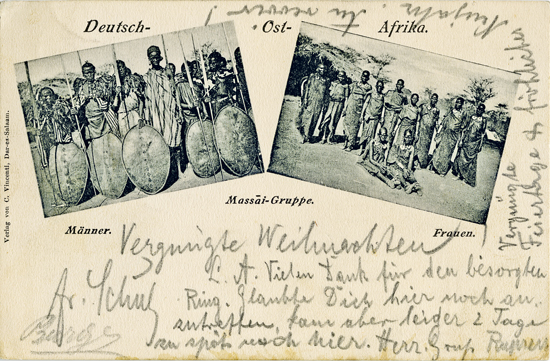 Deutsch- Ost- Afrika.
Massäi-Gruppe.
Männer.
Frauen.
Verlag von C. Vincenti, Dar-es-Salaam.
Vergnügte Weihnachten
L. A. Vielen Dank für den besorgten
Ring. Glaubte Dich hier noch an-
zutreffen, kam aber leider 2 Tage
zu spät nach hier. Herr Graf
Vergnügte
Feiertage & fröhliches
Neujahr!